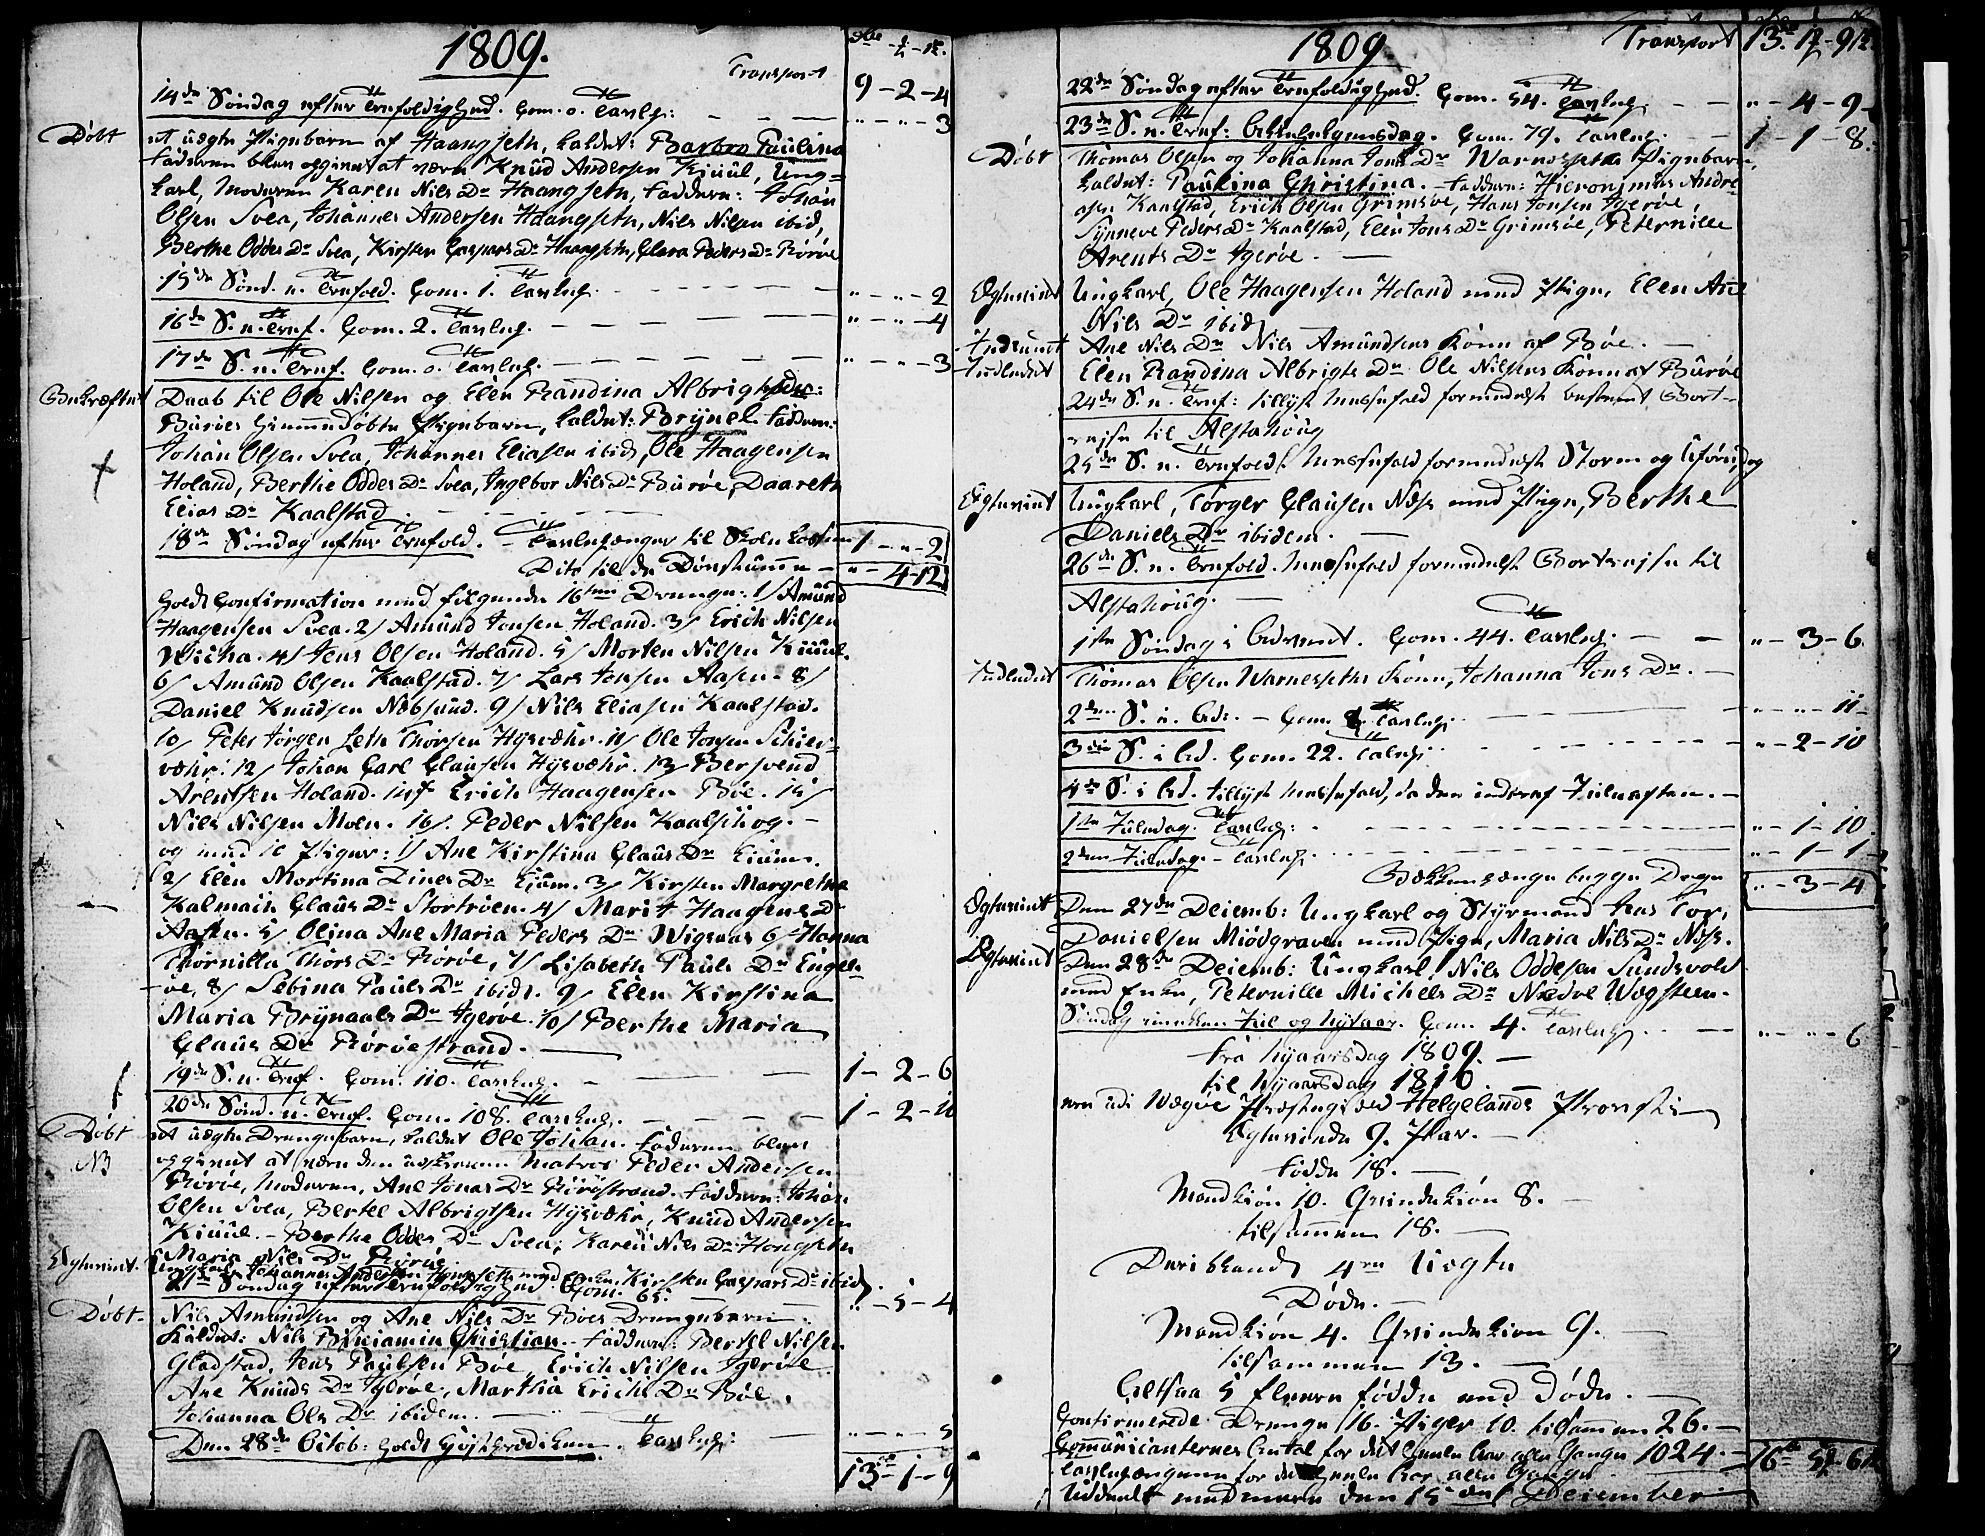 1809.
Transport 9 - 2 - 4
14de Søndag efter Trefoldighed. Com. 0. Tavlep: 3
Døbt et uægte Pigebarn af Haangseth, kaldet: Barbro Paulina
Faderen blev opgivet at være Knud Andersen Kiuul, Ung-
karl, Moderen Karen Nils Dr Haangseth, Faddere: Johan
Olsen Svea, Johannes Andersen Haangseth, Nils Nilsen ibid,
Berthe Oddes Dr Svea, Kirsten Caspars Dr Haangseth, Clara Peders Dr Rørøe
15de Sønd. e. Trefold. Com. 1. Tavlep. 2
16de S. e. Tref. Com. 2. Tavlep. 4
17de S. e. Tref. Com. 0. Tavlep. 3
Bekræftet Daab til Ole Nilsen og Elen Randina Albrigts Dr:
Burøes hiemmedøbte Pigebarn, kaldet: Brynel. Faddere:
Johan Olsen Svea, Johannes Eliasen ibid, Ole Haagensen
Holand, Berthe Oddes Dr Svea, Ingebor Nils Dr Burøe, Daareth
Elias Dr Kaalstad
18de Søndag efter Trefold. - Tavlepenger til Skole Cassen 1 - " - 2
Dito til de Døvstumme " - 4 - 12
holdt Confirmation med følgende 16ten Drenge: 1/ Amund
Haagensen Svea. 2/ Amund Jonsen Holand. 3/ Erich Nilsen
Wicha. 4/ Jens Olsen Holand. 5/ Morten Nilsen Kiuul.
6/ Amund Olsen Kaalstad. 7/ Lars Jonsen Aasen. 8/
Daniel Knudsen Nøbsund. 9/ Nils Eliasen Kaalstad.
10/ Peter Jørgen Leth Thorsen Hysvæhr. 11/ Ole Jonsen Schier-
væhr. 12/ Johan Carl Clausen Hysvæhr. 13/ Bersvend
Arentsen Holand. 14/ Erich Haagensen Bøe. 15/
Nils Nilsen Moen. 16/. Peder Nilsen Kaalschog. -
og med 10 Piger: 1/ Ane Kirstina Claus Dr Eium.
2/ Elen Mortina Dines Dr Eium. 3/ Kirsten Margrethe
Kalmain Claus Dr Stortrøen. 4/ Marit Haagens Dr
Aasen. 5/ Olina Ane Maria Peders Dr Wigsnas 6/ Hanna
Thornilla Thors Dr Rørøe, 7/ Lisabeth Pauls Dr Engel-
øe, 8/ Sebina Pauls Dr ibid. 9/ Elen Kirstina
Maria Brynaals Dr Igerøe. 10/ Berthe Maria
Claus Dr Rørøestrand.
19de S. e. Tref. Com. 110. Tavlep. 1 - 2 - 6
20de Sønd. e. Tref. Com. 108. Tavlep. 1 - 2 - 10
Døbt et uægte Drengebarn, kaldet Ole Johan. Faderen blev
NB opgivet at være den udskrevne Matros Peder Andersen
Rørøe, Moderen, Ane Jonas Dr Rørøstrand. Faddere: Johan
Olsen Svea, Bertel Albrigtsen Hysvæhr, Knud Andersen
Kiuul. - Berthe Oddes Dr Svea, Karen Nils Dr Hongseth
Maria Nils Dr
Egteviet. Ungkarl Johannes Andersen Hongseth med Enken Kirsten Caspars Dr ibid.
21de Søndag efter Trefoldighed. Com. 65. " - 5 - 4
Døbt - Nils Amundsen og Ane Nils Dr Bøes Drengebarn
kaldet: Nils Beniamin Christian. Faddere: Bertel Nilsen
Gladstad, Jens Paulsen Bøe, Erich Nilsen Igerøe
Ane Knuds Dr Igerøe, Martha Erichs Dr Bøe,
Johanna Ols Dr ibidem.
Den 28de Octob: holdt Høstprædiken. Tavlep: 5
13 - 1 - 9
1809.
Transport 13 - 1 - 9
22de Søndag efter Trefoldighed. Com. 54. Tavlep. " - 4 - 9
23de S. e. Tref: Allehelgensdag. Com. 79. Tavlep: 1 - 1 - 8
Døbt Thomas Olsen og Johanna Jons Dr Warnesseths Pigebarn,
kaldet: Paulina Christina. - Faddere: Hieronimus Andre-
asen Kaalstad, Erich Olsen Grimsøe, Hans Jonsen Igerøe,
Synneve Peders Dr Kaalstad, Elen Jons Dr Grimsøe, Peternille
Arents Dr Igerøe.
Egteviet Ungkarl, Ole Haagensen Holand med Pige, Elen Ane
Nils Dr ibid
Indledet Ane Nils Dr Nils Amundsens Kone af Bøe.
Indledet Elen Randina Albrigts Dr Ole Nilsens Kone af Burøe
24de S. e. Tref: tillyst Messefald formedelst bestemt Bort-
rejse til Alstahoug
25de S. e. Trefold. Messefald formedelst Storm og Uføre dag
Egteviet Ungkarl, Torger Clausen Næss med Pige, Berthe
Daniels Dr ibidem.
26de S. e. Trefold. Messefald formedelst Bortrejse til
Alstahoug.
1ste Søndag i Advent. Com. 44. Tavlep. " - 3 - 6
Indledet Thomas Olsen Warnesseths Kone, Johanna Jons Dr.
2den S. i. Ad. - Com. Tavlep. 11
3die S. i Ad. Com. 22. Tavlep. " - 2 - 10
4de S. i Ad. tillyst Messefald, da den indtraf Juleaften.
1ste Juledag. Tavlep: " - 1 - 10
2den Juledag - Tavlep. " - 1 - 1
Bækkenpenge begge Dage " - 3 - 4
Egteviet Den 27de Decemb: Ungkarl og Styrmand Jens Tor,
Danielsen Miødgraven med Pige, Maria Nils Dr Næss.
Egteviet Den 28de Decemb: Ungkarl, Nils Oddesen Sundsvold
med Enke, Peternille Michels Dr Nedre Wægsteen.
Søndag imellem Juel og Nytaar. Com. 4. Tavlep. 6
Fra Nyaarsdag 1809.
til Nyaarsdag 1810
ere udi Wægøe Præstegield Helgelands Provstie
Egteviede 9. Par.
Fødde 18.
Mandkiøn 10. Qvindekiøn 8.
tilsammen 18.
Deriblandt 4re Uægte
Døde.
Mandkiøn 4. Qvindekiøn 9.
tilsammen 13.
Altsaa 5 fleere fødde end døde.
Confirmerede Drenge 16. Piger 10. tilsammen 26.
Communicanternes Antal for det heele Aar alle Gange 1024.
Tavlepengene for det heele Aar alle Gange 16 - 5 - 6